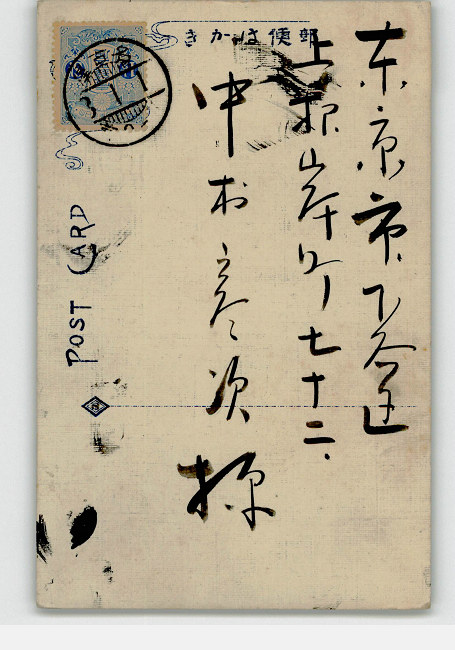 郵便はかき
東京市下谷區
上根岸町七十二、
中村彦次様
POST CARD